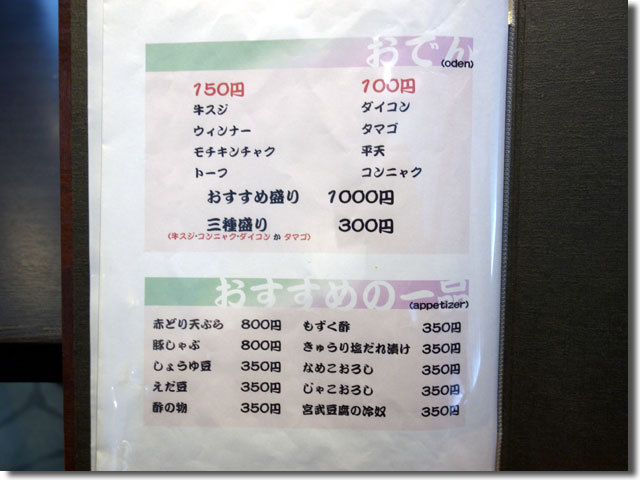 おでん
(oden)
150円 100円
牛スジ ダイコン
ウィンナー タマゴ
モチキンチャク 平天
トーフ コンニャク
おすすめ盛り 1000円
三種盛り 300円
(牛スジ・コンニャク・ダイコン か タマゴ)
おすすめの一品
(appetizer)
赤どり天ぷら 800円 もずく酢 350円
豚しゃぶ 800円 きゅうり塩だれ漬け 350円
しょうゆ豆 350円 なめこおろし 350円
えだ豆 350円 じゃこおろし 350円
酢の物 350円 宮武豆腐の冷奴 350円